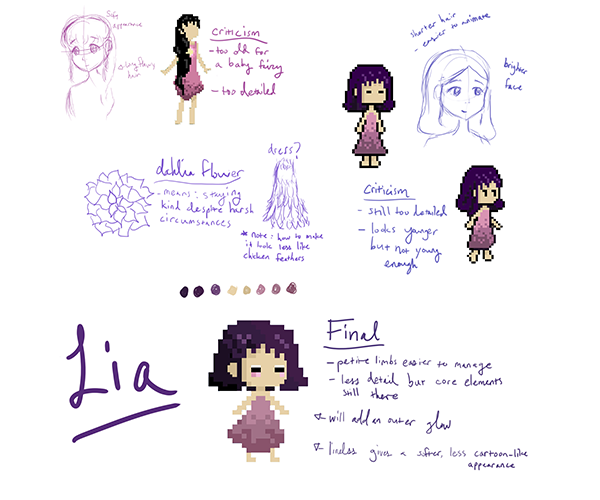 Safe
appearance
long flowy
hair
criticism
- too old for
a baby fairy
- too detailed
shorter hair
- easier to animate
brighter
face
dahlia flower
- means: staying
kind despite harsh
circumstances
dress?
* note: how to make
it look less like
chicken feathers
criticism
- still too detailed
- looks younger
but not young
enough
Lia
Final
- petite limbs easier to manage
- less detail but core elements
still there
will add an outer glow
lineless gives a softer, less cartoon-like
appearance